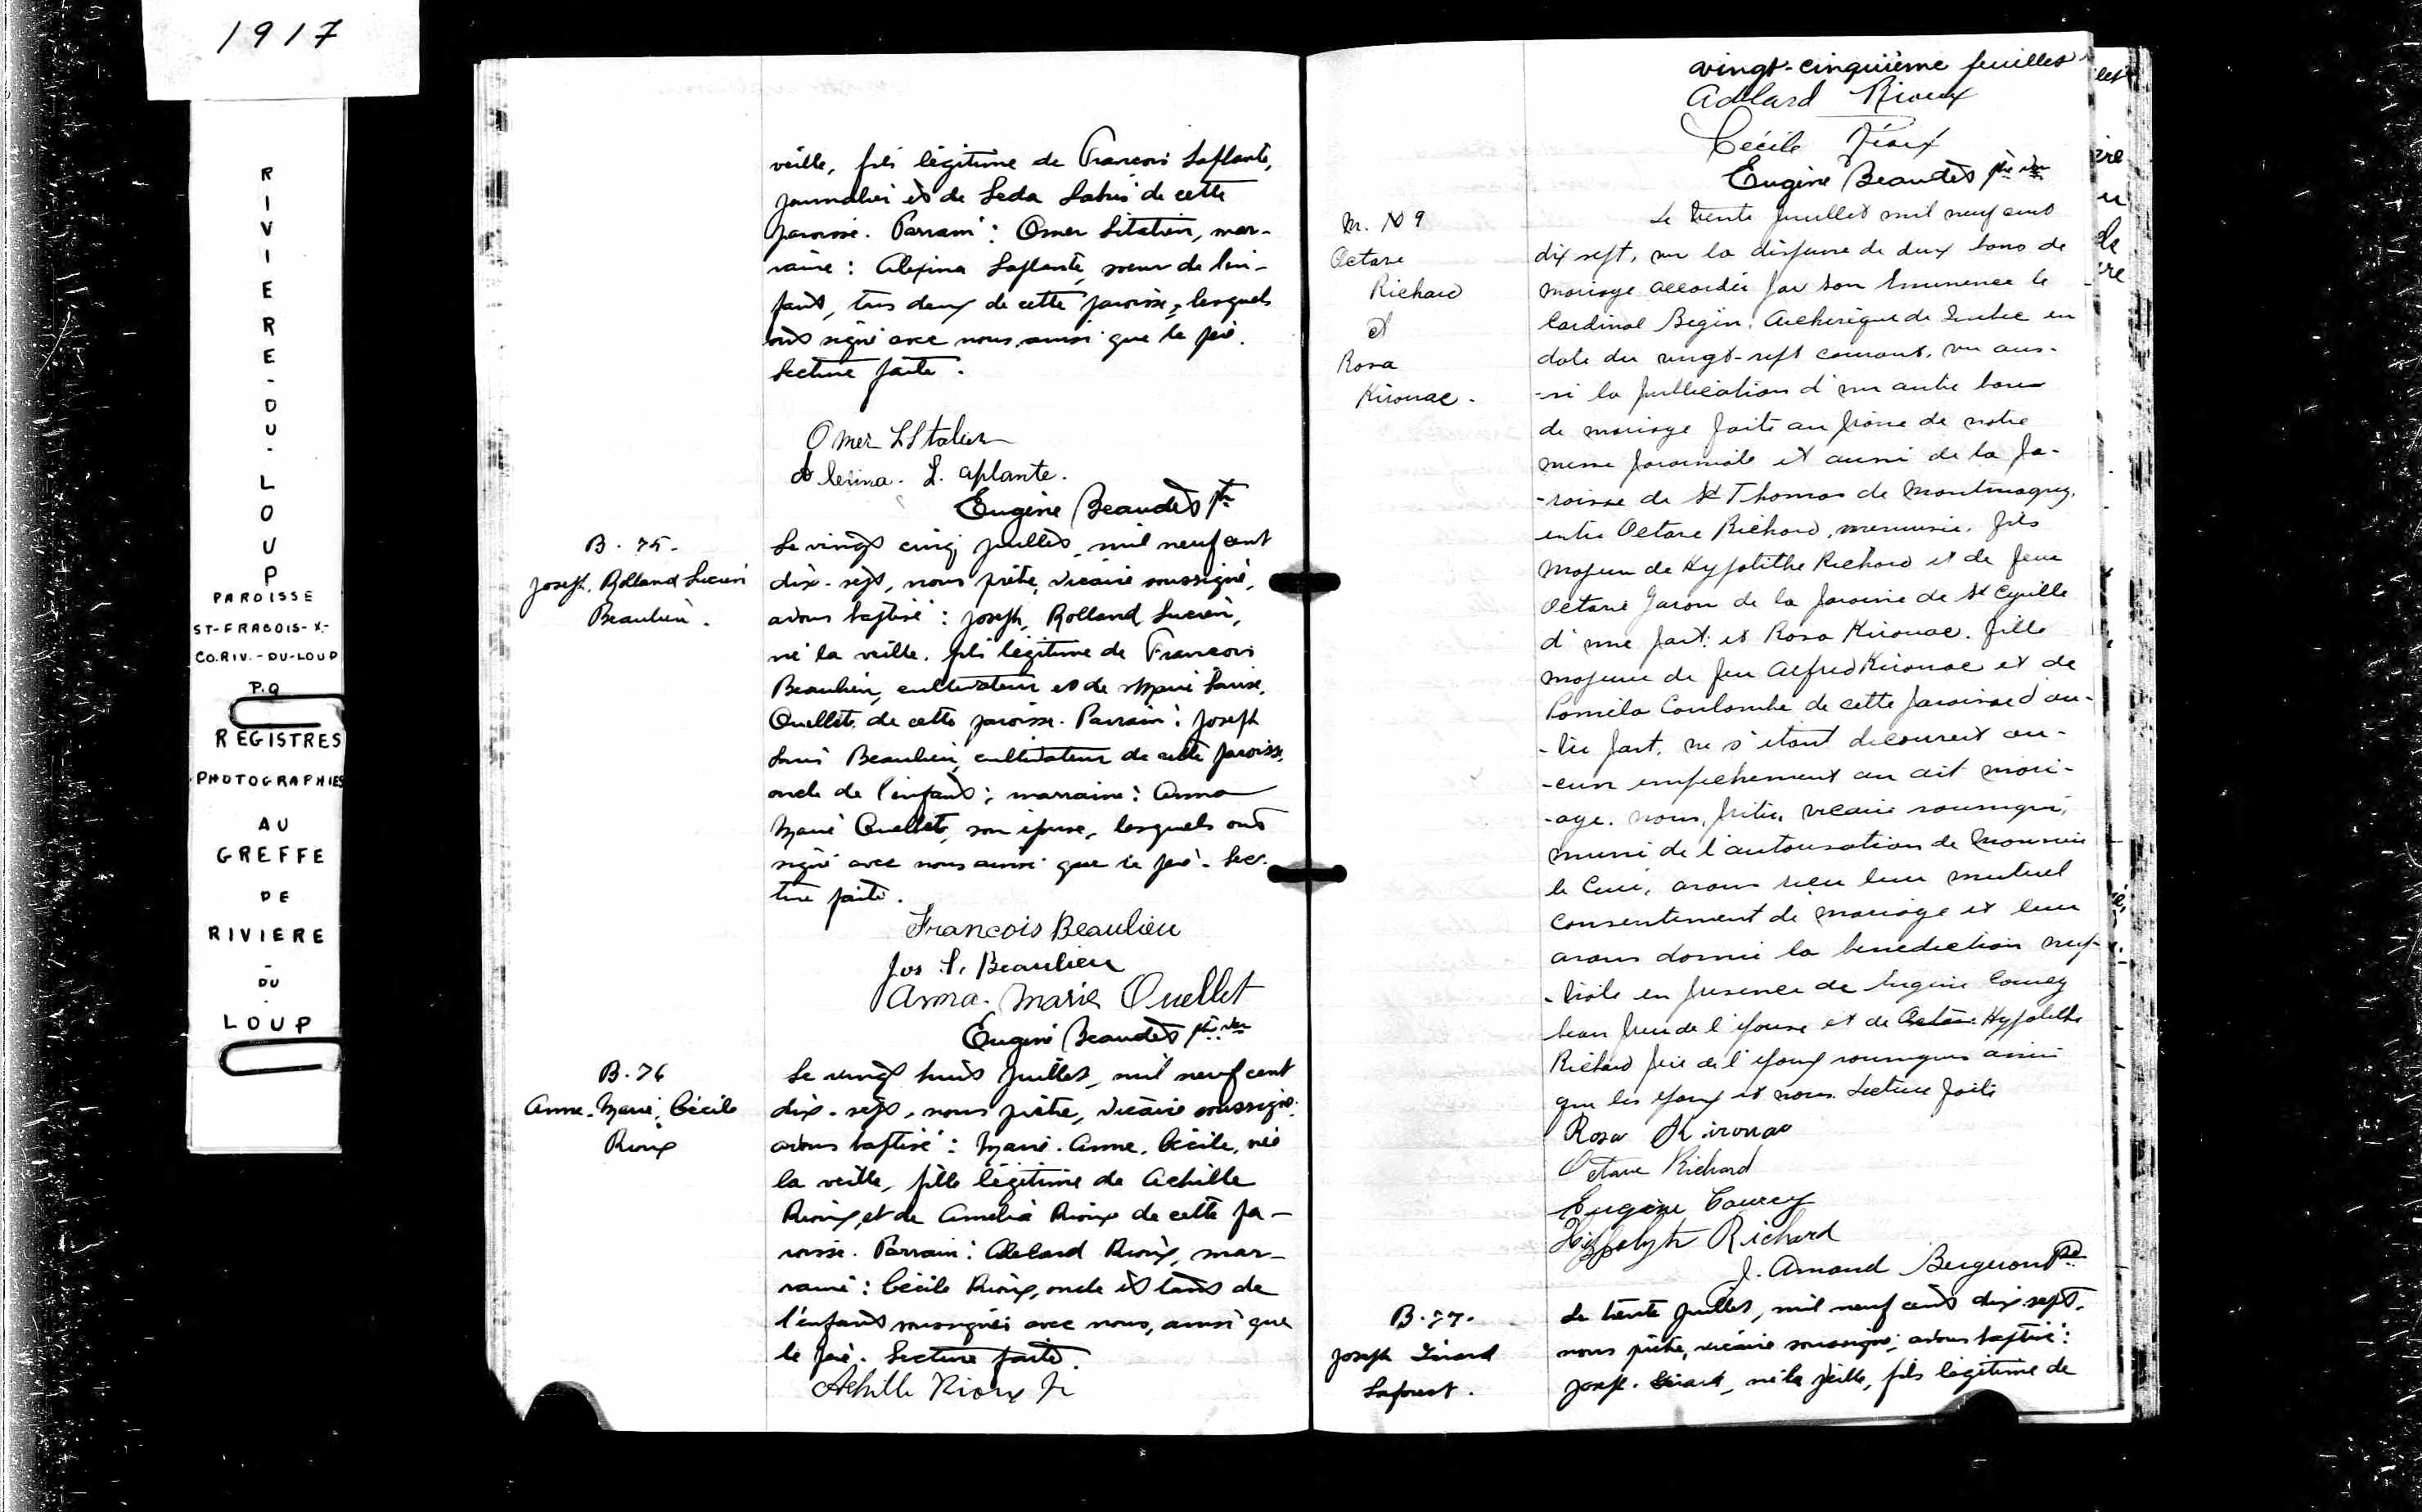 1917
RIVIERE-DU-LOUP
PAROISSE
ST-FRABOIS-X.-
CO.RIV.-DU-LOUP
P.Q
REGISTRES
PHOTOGRAPHIES
AU
GREFFE
DE
RIVIERE
-
DU
-
LOUP
veille, fils légitime de Francois Laflante,
journalier et de Leda de cette
paroisse. Parrain : Omer Litalien, mar-
raine : Alexina Laflante, soeur de l'en-
fant, tous deux de cette paroisse, lesquels
ont signé avec nous ainsi que le père.
Lecture faite.
Omer LStalien
Alexina. L. aplante.
Eugène Beaudet ptr
B. 75.
Joseph, Rolland Lucien
Beaulieu.
Le vingt cinq juillet, mil neuf cent
dix-sept, nous prêtre, vicaire soussigné,
avons baptisé : Joseph, Rolland Lucien,
né la veille, fils légitime de Francois
Beaulieu, cultivateur et de Marie Louise,
Ouellet, de cette paroisse. Parrain : Joseph
Louis Beaulieu, cultivateur de cette paroisse,
oncle de l'enfant ; marraine : Anna
Marie Ouellet, son épouse, lesquels ont
signé avec nous ainsi que le père. Lec-
ture faite.
Francois Beaulieu
Jos L. Beaulieu
Anna-Marie Ouellet
Eugène Beaudet ptre vic
B. 76
Anne-Marie, Cécile
Rioux
Le vingt huit juillet, mil neuf cent
dix-sept, nous prêtre, vicaire soussigné,
avons baptisé : Marie. Anne. Cécile, née
la veille, fille légitime de Achille
Rioux, et de Amelia Rioux de cette pa-
roisse. Parrain : Adelard Rioux, mar-
raine : Cécile Rioux, oncle et tante de
l'enfant soussignés avec nous, ainsi que
le père. Lecture faite.
Achille Rioux Jr
vingt-cinquième feuillet
Adelard Rioux
Cécile Rioux
Eugène Beaudet ptre vic
M. N 9
Octave
Richard
et
Rosa
Kirouac.
Le trente juillet mil neuf cent
dix sept, vu la dispense de deux bans de
mariage accordée par Son Eminence le
Cardinal Begin, Archevêque de Québec en
date du vingt-sept courant, vu aus-
-si la publication d'un autre ban
de mariage faite au prône de notre
messe paroissiale et aussi de la pa-
-roisse de St Thomas de Montmagny,
entre Octave Richard, menuisier, fils
majeur de Hypolithe Richard et de feue
Octavie Caron de la paroisse de St Cyrille
d'une part; et Rosa Kirouac, fille
majeure de feu Alfred Kirouac et de
Pomela Coulombe de cette paroisse d'au-
-tre part, ne s'étant découvert au-
-cun empêchement au dit mari-
-age, nous, prêtre, vicaire soussigné,
muni de l'autorisation de Monsieur
le Curé, avons reçu leur mutuel
consentement de mariage et leur
avons donné la bénédiction nup-
-tiale en présence de Eugène Courcy
beau frère de l'épouse et de Octave Hypolithe
Richard père de l'époux soussignés ainsi
que les époux et nous. Lecture faite
Rosa Kirouac
Octave Richard
Eugène Courcy
Hippolyte Richard
J. Amand Bergeron Ptre
B. 77.
Joseph Girard
Laforest.
Le trente juillet, mil neuf cent dix sept,
nous prêtre, vicaire soussigné, avons baptisé :
Joseph. Girard, né la veille, fils légitime de